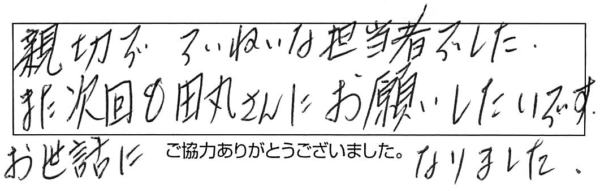 親切で ていねいな担当者でした.
また次回も田丸さんにお願いしたいです.
お世話に ご協力ありがとうございました。 なりました.